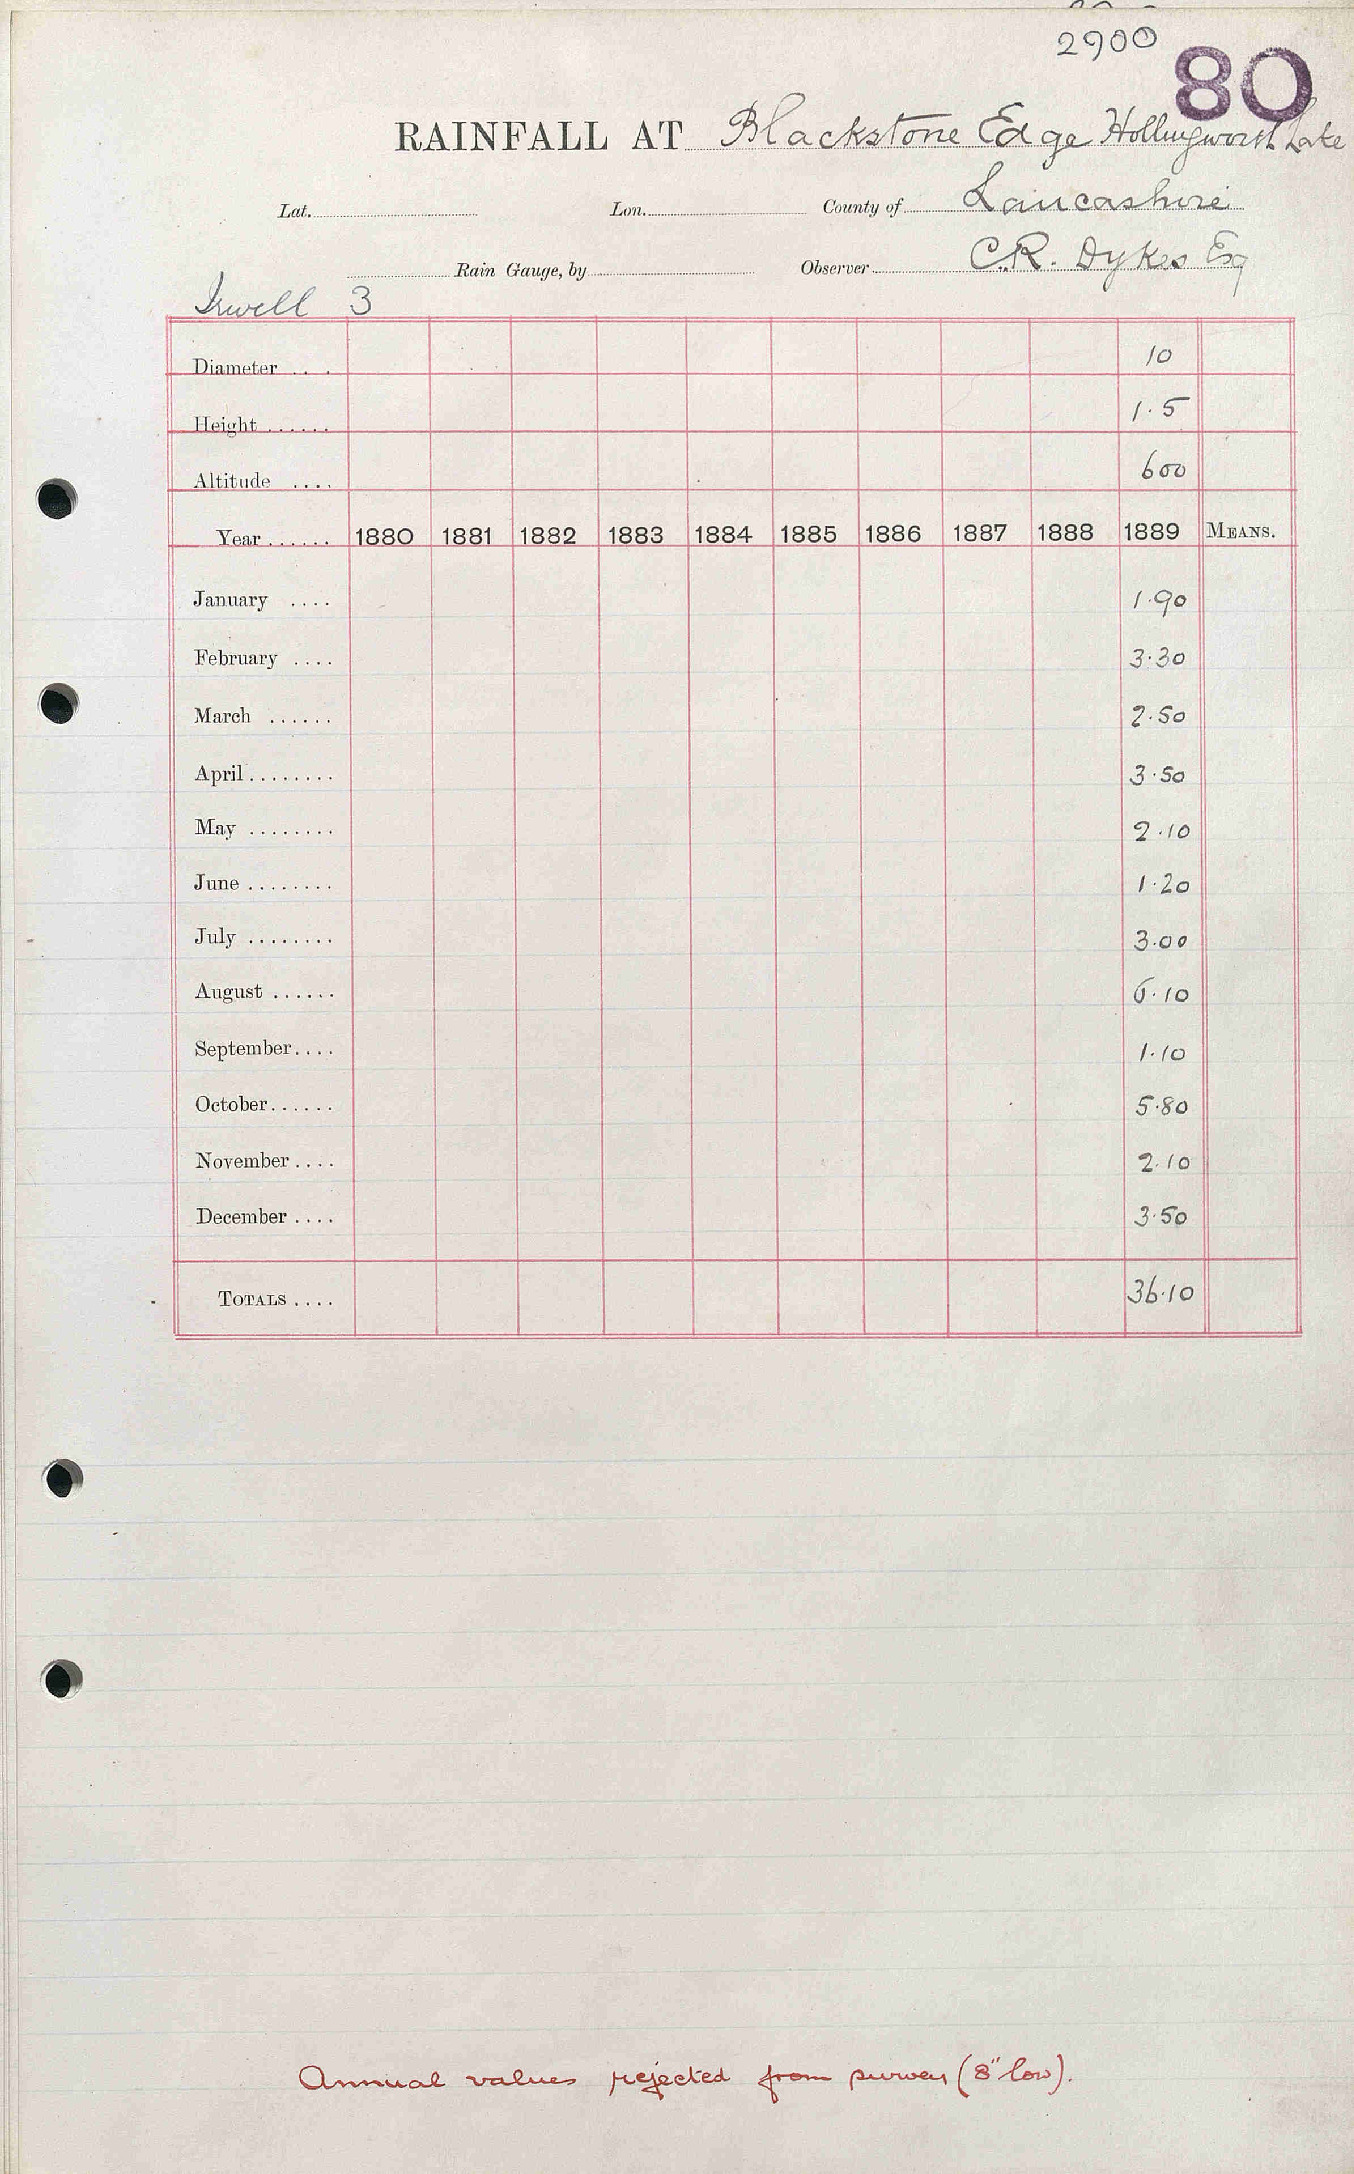 2900
80
RAINFALL AT Blackstone Edge Hollingworth Lake
Lat. Lon. County of Lancashire
Rain Gauge, by Observer C.R. Dykes Esq
Irwell 3
Diameter .... 10
Height ...... 1.5
Altitude .... 600
Year ...... 1880 1881 1882 1883 1884 1885 1886 1887 1888 1889 MEANS.
January .... 1.90
February .... 3.30
March ...... 2.50
April ........ 3.50
May ........ 2.10
June ........ 1.20
July ........ 3.00
August ...... 6.10
September .... 1.10
October ...... 5.80
November .... 2.10
December .... 3.50
TOTALS .... 36.10
Annual values rejected from survey (8" low).